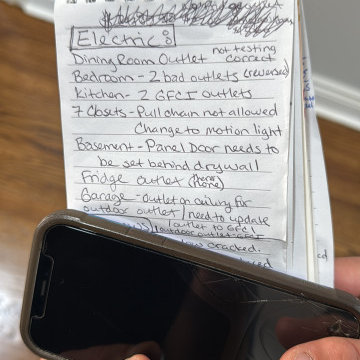 Electric:
not testing
Dining Room Outlet correct
Bedroom - 2 bad outlets (reversed)
Kitchen - 2 GFCI outlets
7 Closets - Pull chain not allowed
Change to motion light
Basement - Panel Door needs to
be set behind drywall
Fridge outlet
Garage - outlet on ceiling for
outdoor outlet / need to update
outlet to GFCI
outdoor outlet GFCI
cracked.